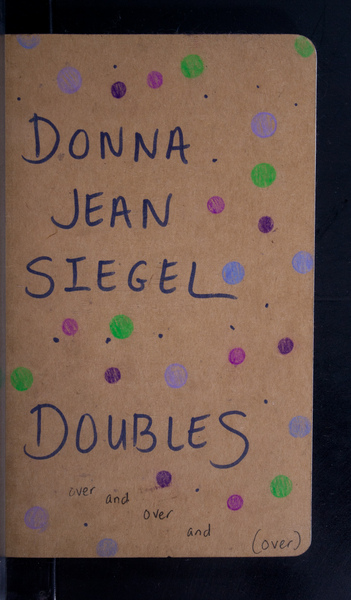 DONNA
JEAN
SIEGEL
DOUBLES
over and
over
and
(over)